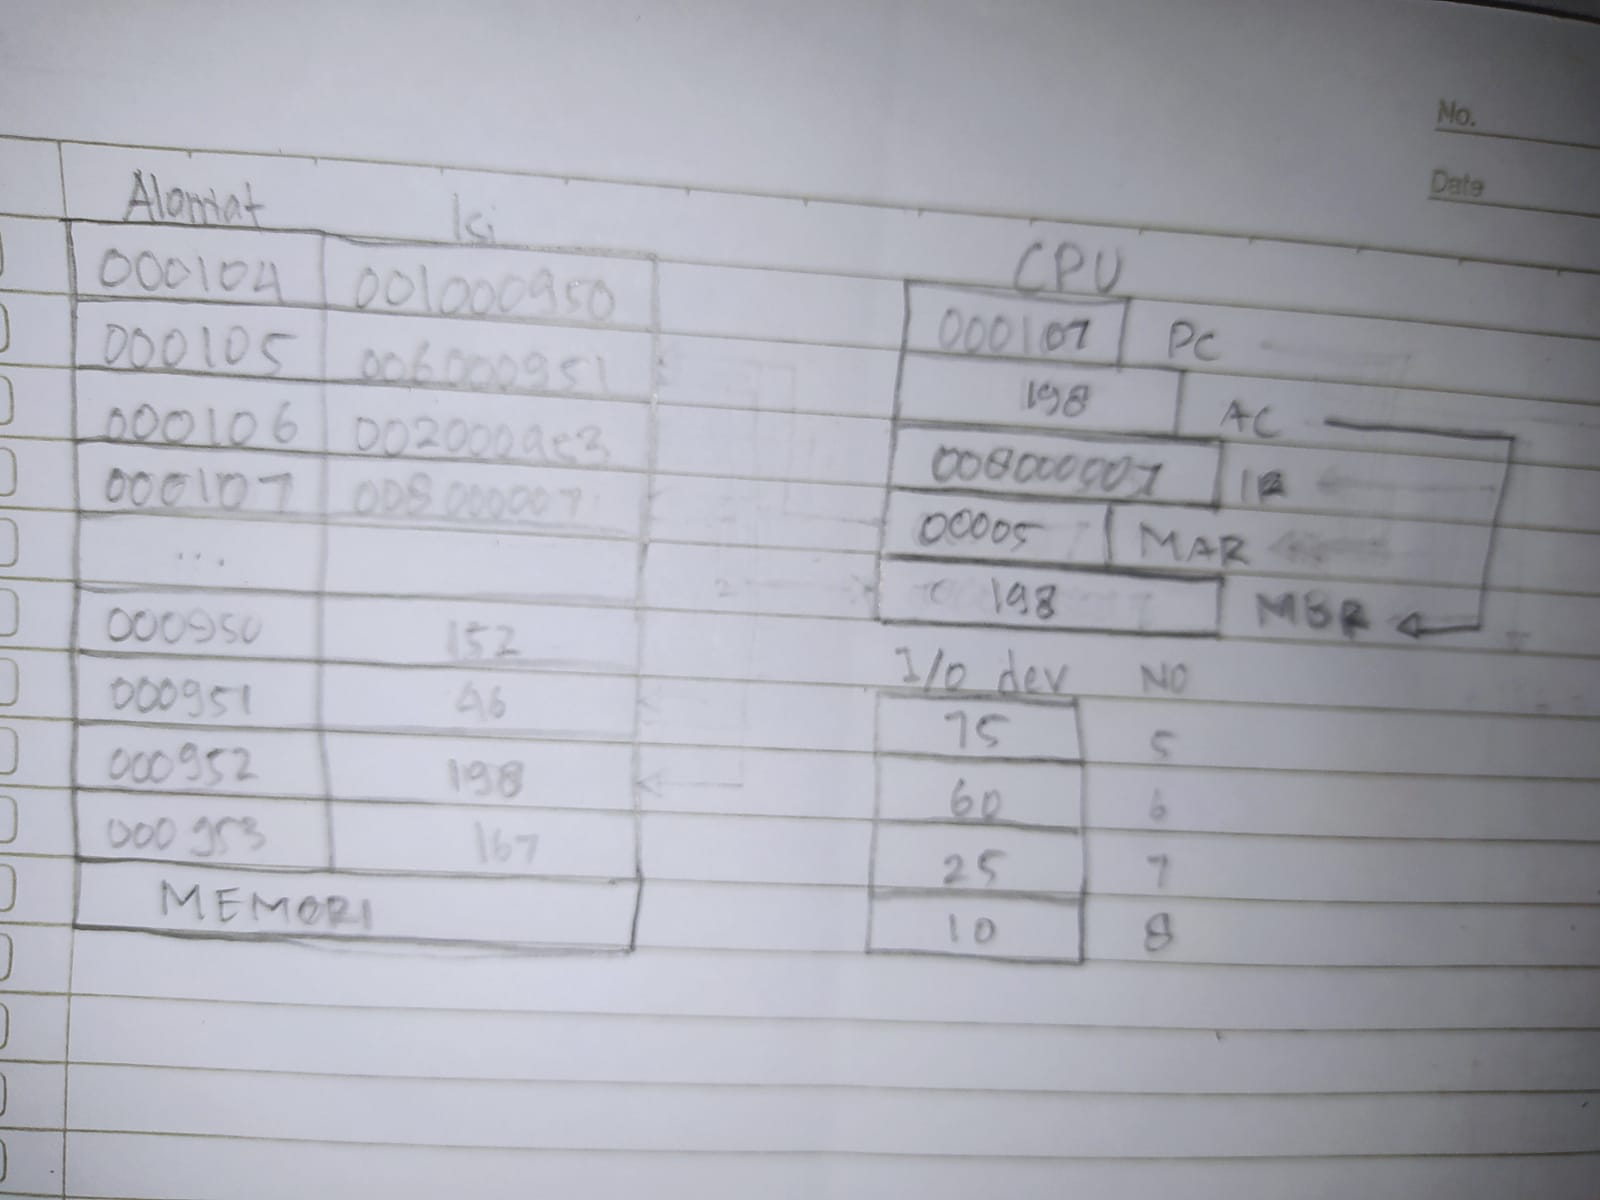 No.
Date
Alamat Isi
000104 001000950
000105 006000951
000106 002000953
000107 008000007
...
000950 152
000951 46
000952 198
000953 167
MEMORI
CPU
000107 PC
198 AC
008000007 IR
00005 MAR
198 MBR
I/O dev NO
75 5
60 6
25 7
10 8